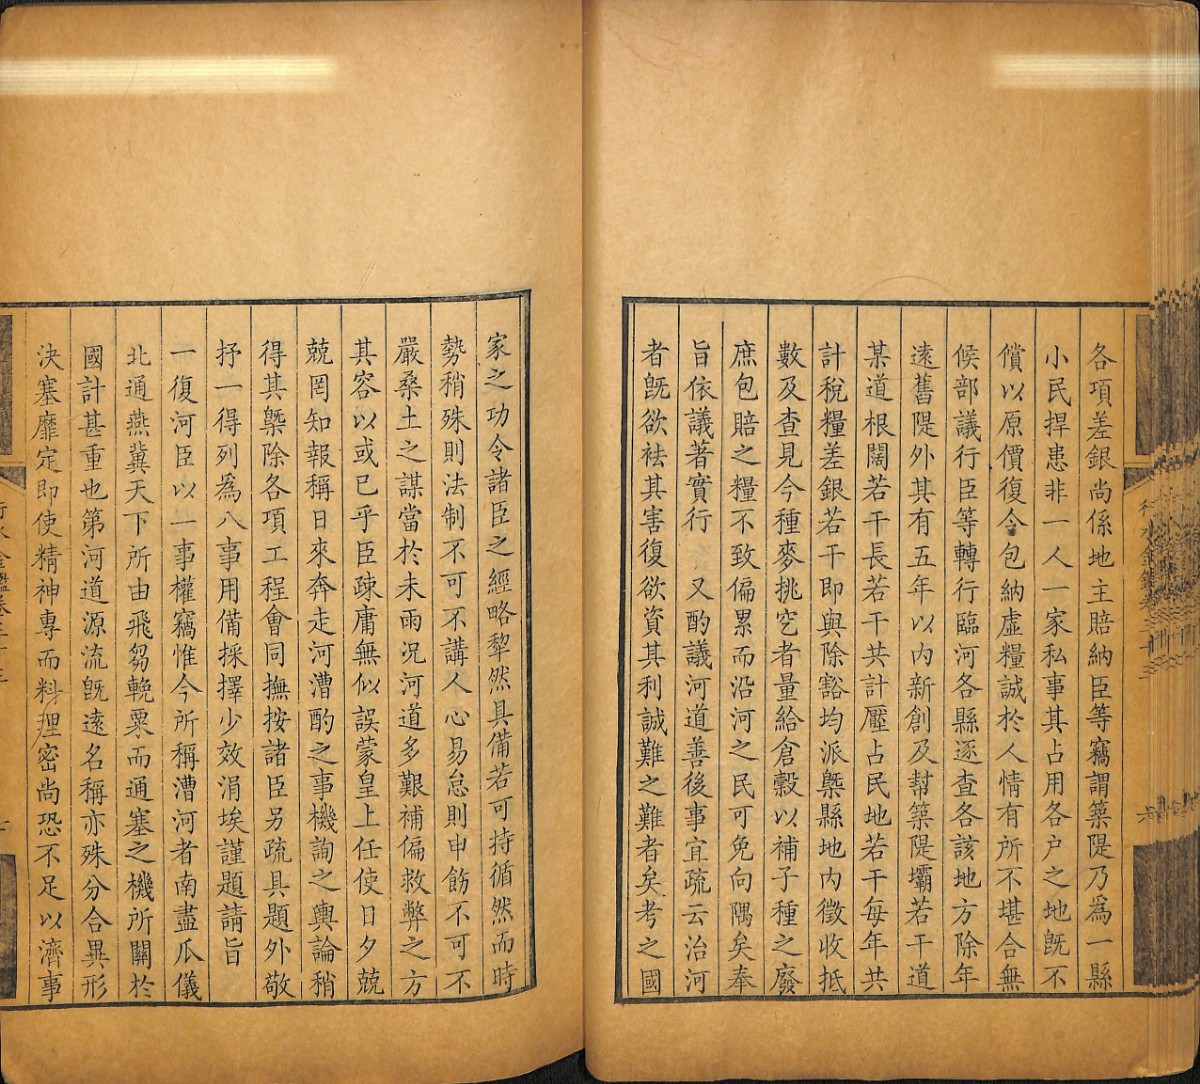 各項差銀尚係地主賠納臣等竊謂築隄乃為一縣
小民捍患非一人一家私事其占用各户之地旣不
償以原價復令包納虛糧誠於人情有所不堪合無
候部議行臣等轉行臨河各縣逐查各該地方除年
遠舊隄外其有五年以內新創及幫築隄壩若干道
某道根闊若干長若干共計壓占民地若干每年共
計稅糧差銀若干即與除豁均派槩縣地內徵收抵
數及查見今種麥挑穵者量給倉穀以補子種之廢
庶包賠之糧不致偏累而沿河之民可免向隅矣奉
旨依議著實行 又酌議河道善後事宜疏云治河
者旣欲祛其害復欲資其利誠難之難者矣考之國
家之功令諸臣之經略犂然具備若可持循然而時
勢稍殊則法制不可不講人心易怠則申飭不可不
嚴桑土之謀當於未雨况河道多艱補偏救弊之方
其容以或已乎臣疎庸無似誤蒙皇上任使日夕兢
兢罔知報稱日來奔走河漕酌之事機詢之輿論稍
得其槩除各項工程會同撫按諸臣另疏具題外敬
抒一得列為八事用備採擇少效涓埃謹題請旨
一復河臣以一事權竊惟今所稱漕河者南盡瓜儀
北通燕冀天下所由飛芻輓粟而通塞之機所關於
國計甚重也第河道源流旣遠名稱亦殊分合異形
決塞靡定即使精神專而料理密尚恐不足以濟事